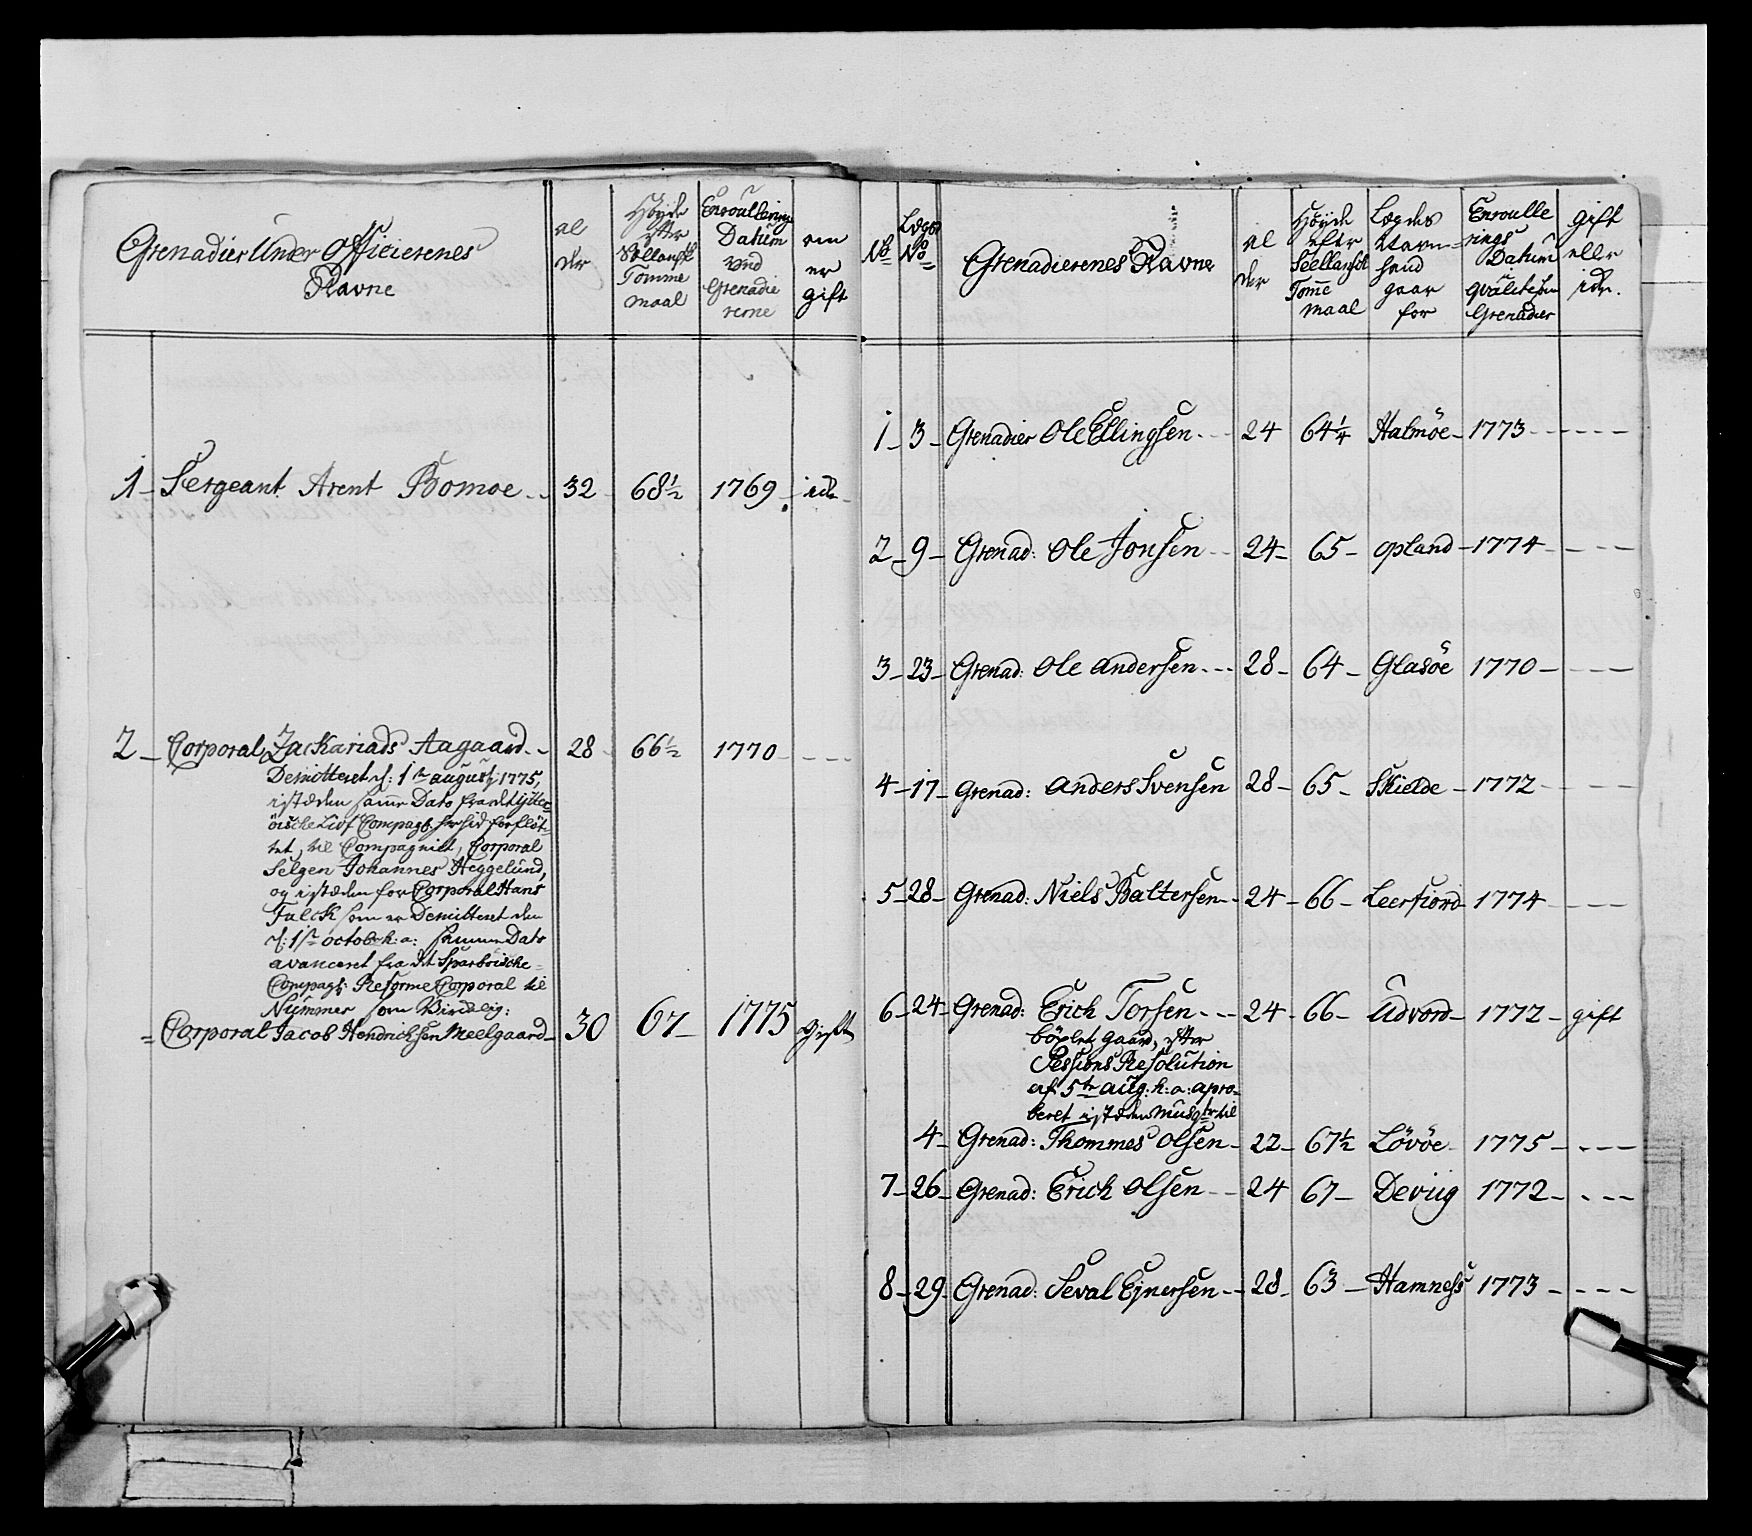 Grenadier Under Officierenes
Navne
al
der
Höyde
efter
Sællansk
Tomme
maal
Enroullerings
Datum
ved
Grenadie
rerne
om
er
gift
1 - Sergeant Arent Bomoe - 32 68½ 1769 - idr
2 - Corporal Zackariads Aagaard - 28 66½ 1770 - - -
Demitteret d: 1te august 1775,
istæden samme Dato fra det
Compag: forflöt-
tet, til Compagniet, Corporal
Selgen Johannes Heggelund,
og istæden for Corporal Hans
Falck som er Demitteret den
d: 1te octob: h: a: samme Dato
avanceret fra det Sparböische
Compag: Reforme Corporal til
Nummer som Virkelig:
= Corporal Jacob Hendrichsen Meelgaard - 30 67 - 1775 gift
No
Lægds
No
Grenadierenes Navne
al
der
Höyde
efter
Seellansk
Tomme
maal
Lægdes
Navn
hand
gaar
for
Enroulle
rings
Datum
qvalitetsen
Grenadier
gift
eller
idr.
1 - 3 - Grenadier Ole Ellingsen - - 24 64¼ Halmöe - 1773 - - - -
2 - 9 - Grenad: Ole Jonsen - - 24 - 65 - opland - 1774 - - - -
3 - 23 - Grenad: Ole Andersen - - - 28 - 64 - Glasöe 1770 - - - -
4 - 17 - Grenad: Anders Svensen 28 - 65 - Skielde - 1772 - - -
5 - 28 - Grenad: Niels Baltersen - - 24 - 66 - Leerfiord - 1774 - - -
6 - 24 - Grenad: Erich Torsen - - - 24 - 66 - Udvord - 1772 - gift
böxlet gaard, efter
Sessions Resolution
af 5te aug: h: a: apro-
beret istæden Musqtr til
4 - Grenad: Thommes Olsen - 22 - 67½ Lövöe - 1775 - - - -
7 - 26 - Grenad: Erich Olsen - - 24 67 - Deviig 1772 - - - -
8 - 29 - Grenad: Seval Ejnersen - - 28 - 63 - Hamness 1773 - - - -